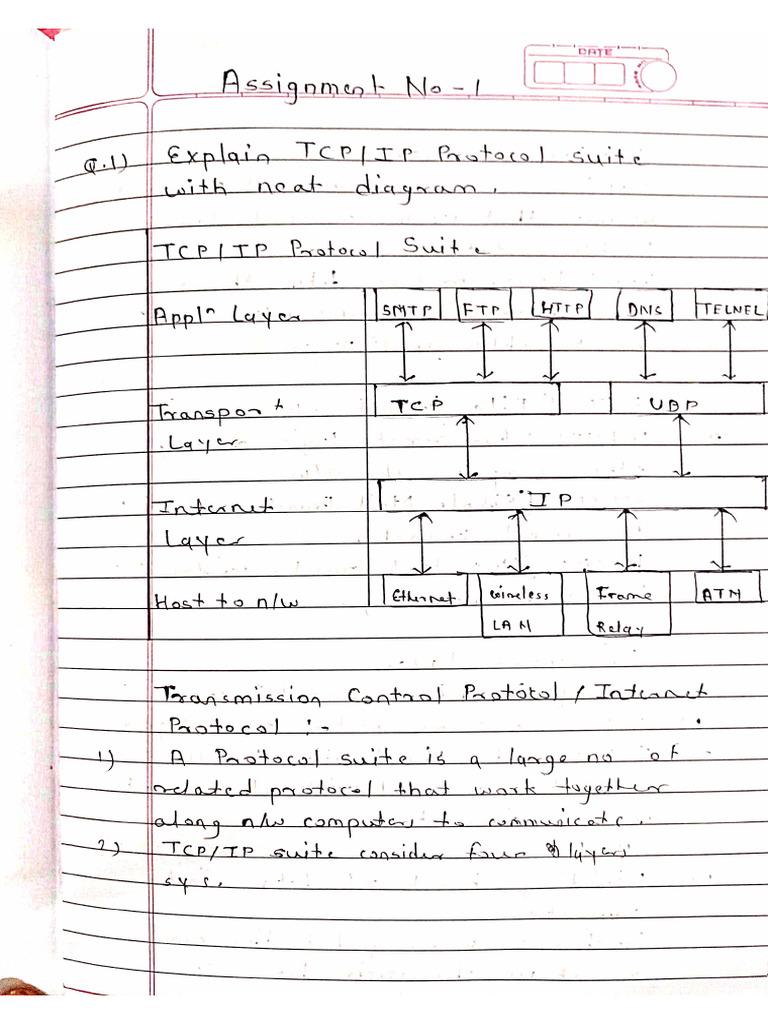 DATE
Assignment No-1
Q.1) Explain TCP/IP Protocol suite
with neat diagram.
TCP/IP Protocol Suite
:
Appln Layer SMTP FTP HTTP DNS TELNEL
Transport TCP UBP
Layer
Internet IP
Layer
Host to n/w Ethernet Wireless Frame ATM
LAN Relay
Transmission Control Protocol / Internet
Protocol :-
1) A Protocol suite is a large no of
related protocol that work together
along n/w computers to communicate.
2) TCP/IP suite consider four layers
sys.